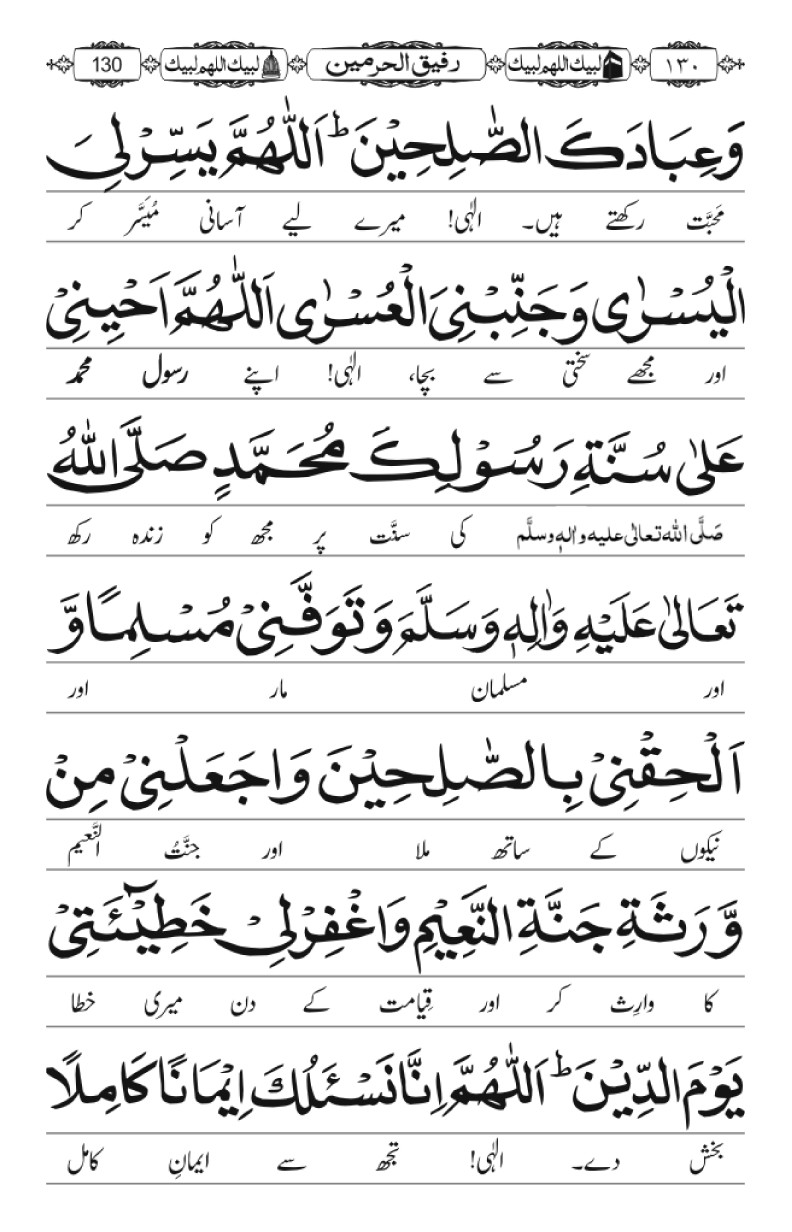 ١٣٠ لبيك اللهم لبيك رفيق الحرمين لبيك اللهم لبيك 130
وَعِبَادَكَ الصّٰلِحِيْنَ ؕ اَللّٰهُمَّ يَسِّرْلِىَ
مَحَبَّت رکھتے ہیں۔ الٰہی! میرے لیے آسانی مُیَسَّر کر
الْيُسْرٰى وَجَنِّبْنِىَ الْعُسْرٰى اَللّٰهُمَّ اَحْيِنِىْ
اور مجھے سختی سے بچا، الٰہی! اپنے رسول محمد
عَلٰى سُنَّةِ رَسُوْلِكَ مُحَمَّدٍ صَلَّى اللّٰهُ
صَلَّی اللہ تعالٰی علیہ واٰلہٖ وسلَّم کی سنَّت پر مجھ کو زندہ رکھ
تَعَالٰى عَلَيْهِ وَاٰلِهٖ وَسَلَّمَ وَتَوَفَّنِىْ مُسْلِمًا وَّ
اور مسلمان مار اور
اَلْحِقْنِىْ بِالصّٰلِحِيْنَ وَاجْعَلْنِىْ مِنْ
نیکوں کے ساتھ ملا اور جنَّتُ النَّعیم
وَّرَثَةِ جَنَّةِ النَّعِيْمِ وَاغْفِرْلِىْ خَطِيْٓئَتِىْ
کا وارِث کر اور قِیامت کے دن میری خطا
يَوْمَ الدِّيْنَ ؕ اَللّٰهُمَّ اِنَّا نَسْئَلُكَ اِيْمَانًا كَامِلًا
بخش دے۔ الٰہی! تجھ سے ایمانِ کامل